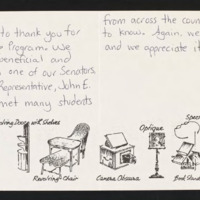 to thank you for
Program. We
beneficial and
one of our Senators.
Representative, John E.
met many students
from across the coun
to know. Again, we
and we appreciate it
Revolving Chair
Camera Obscura
Optique
Book Stand